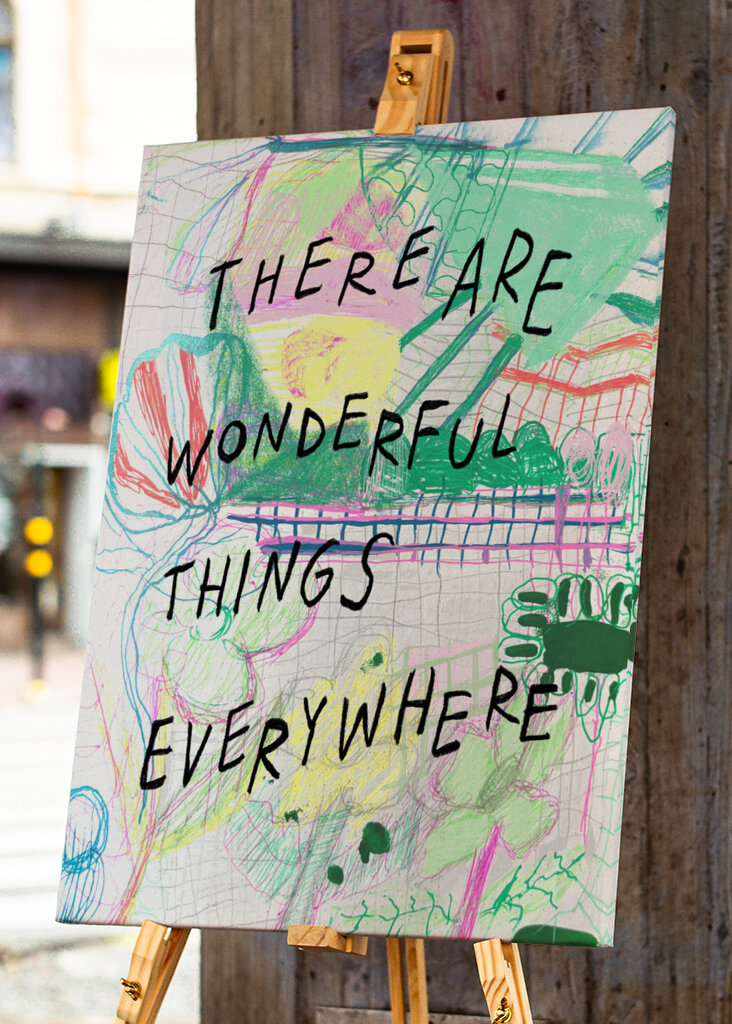 THERE ARE
WONDERFUL
THINGS
EVERYWHERE